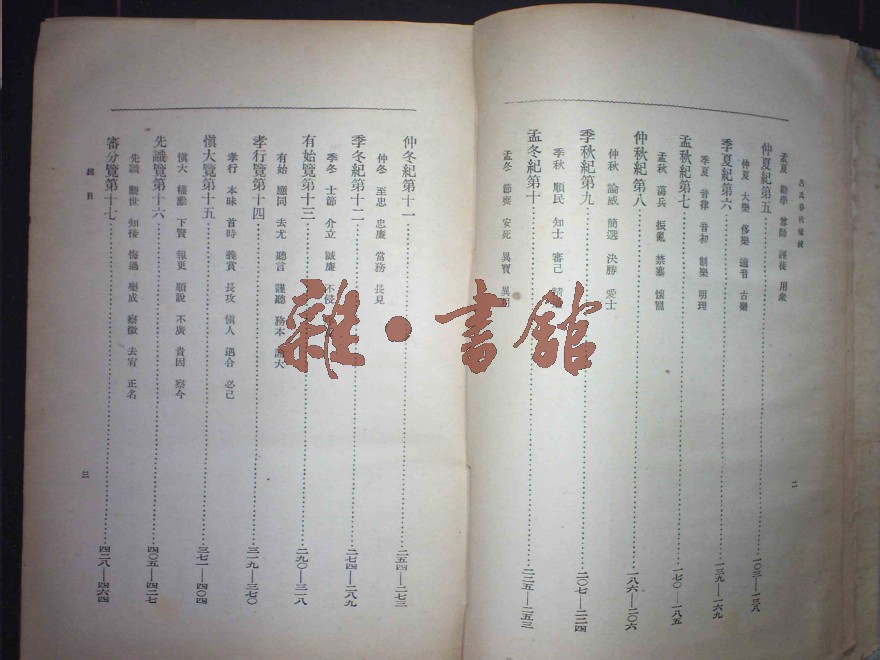 呂氏春秋彙校
二
孟夏 勸學 尊師 誣徒 用衆
仲夏紀第五 一〇三——一三八
仲夏 大樂 侈樂 適音 古樂
季夏紀第六 一三九——一六九
季夏 音律 音初 制樂 明理
孟秋紀第七 一七〇——一八五
孟秋 蕩兵 振亂 禁塞 懷寵
仲秋紀第八 一八六——二〇六
仲秋 論威 簡選 決勝 愛士
季秋紀第九 二〇七——二二四
季秋 順民 知士 審己
孟冬紀第十 二二五——二五三
孟冬 節喪 安死 異寶 異用
仲冬紀第十一 二五四——二七三
仲冬 至忠 忠廉 當務 長見
季冬紀第十二 二七四——二八九
季冬 士節 介立 誠廉 不侵
有始覽第十三 二九〇——三一八
有始 應同 去尤 聽言 謹聽 務本 諭大
孝行覽第十四 三一九——三七〇
孝行 本味 首時 義賞 長攻 愼人 遇合 必己
愼大覽第十五 三七一——四〇四
愼大 權勳 下賢 報更 順說 不廣 貴因 察今
先識覽第十六 四〇五——四二七
先識 觀世 知接 悔過 樂成 察微 去宥 正名
審分覽第十七 四二八——四六四
總目
三
雜·書館